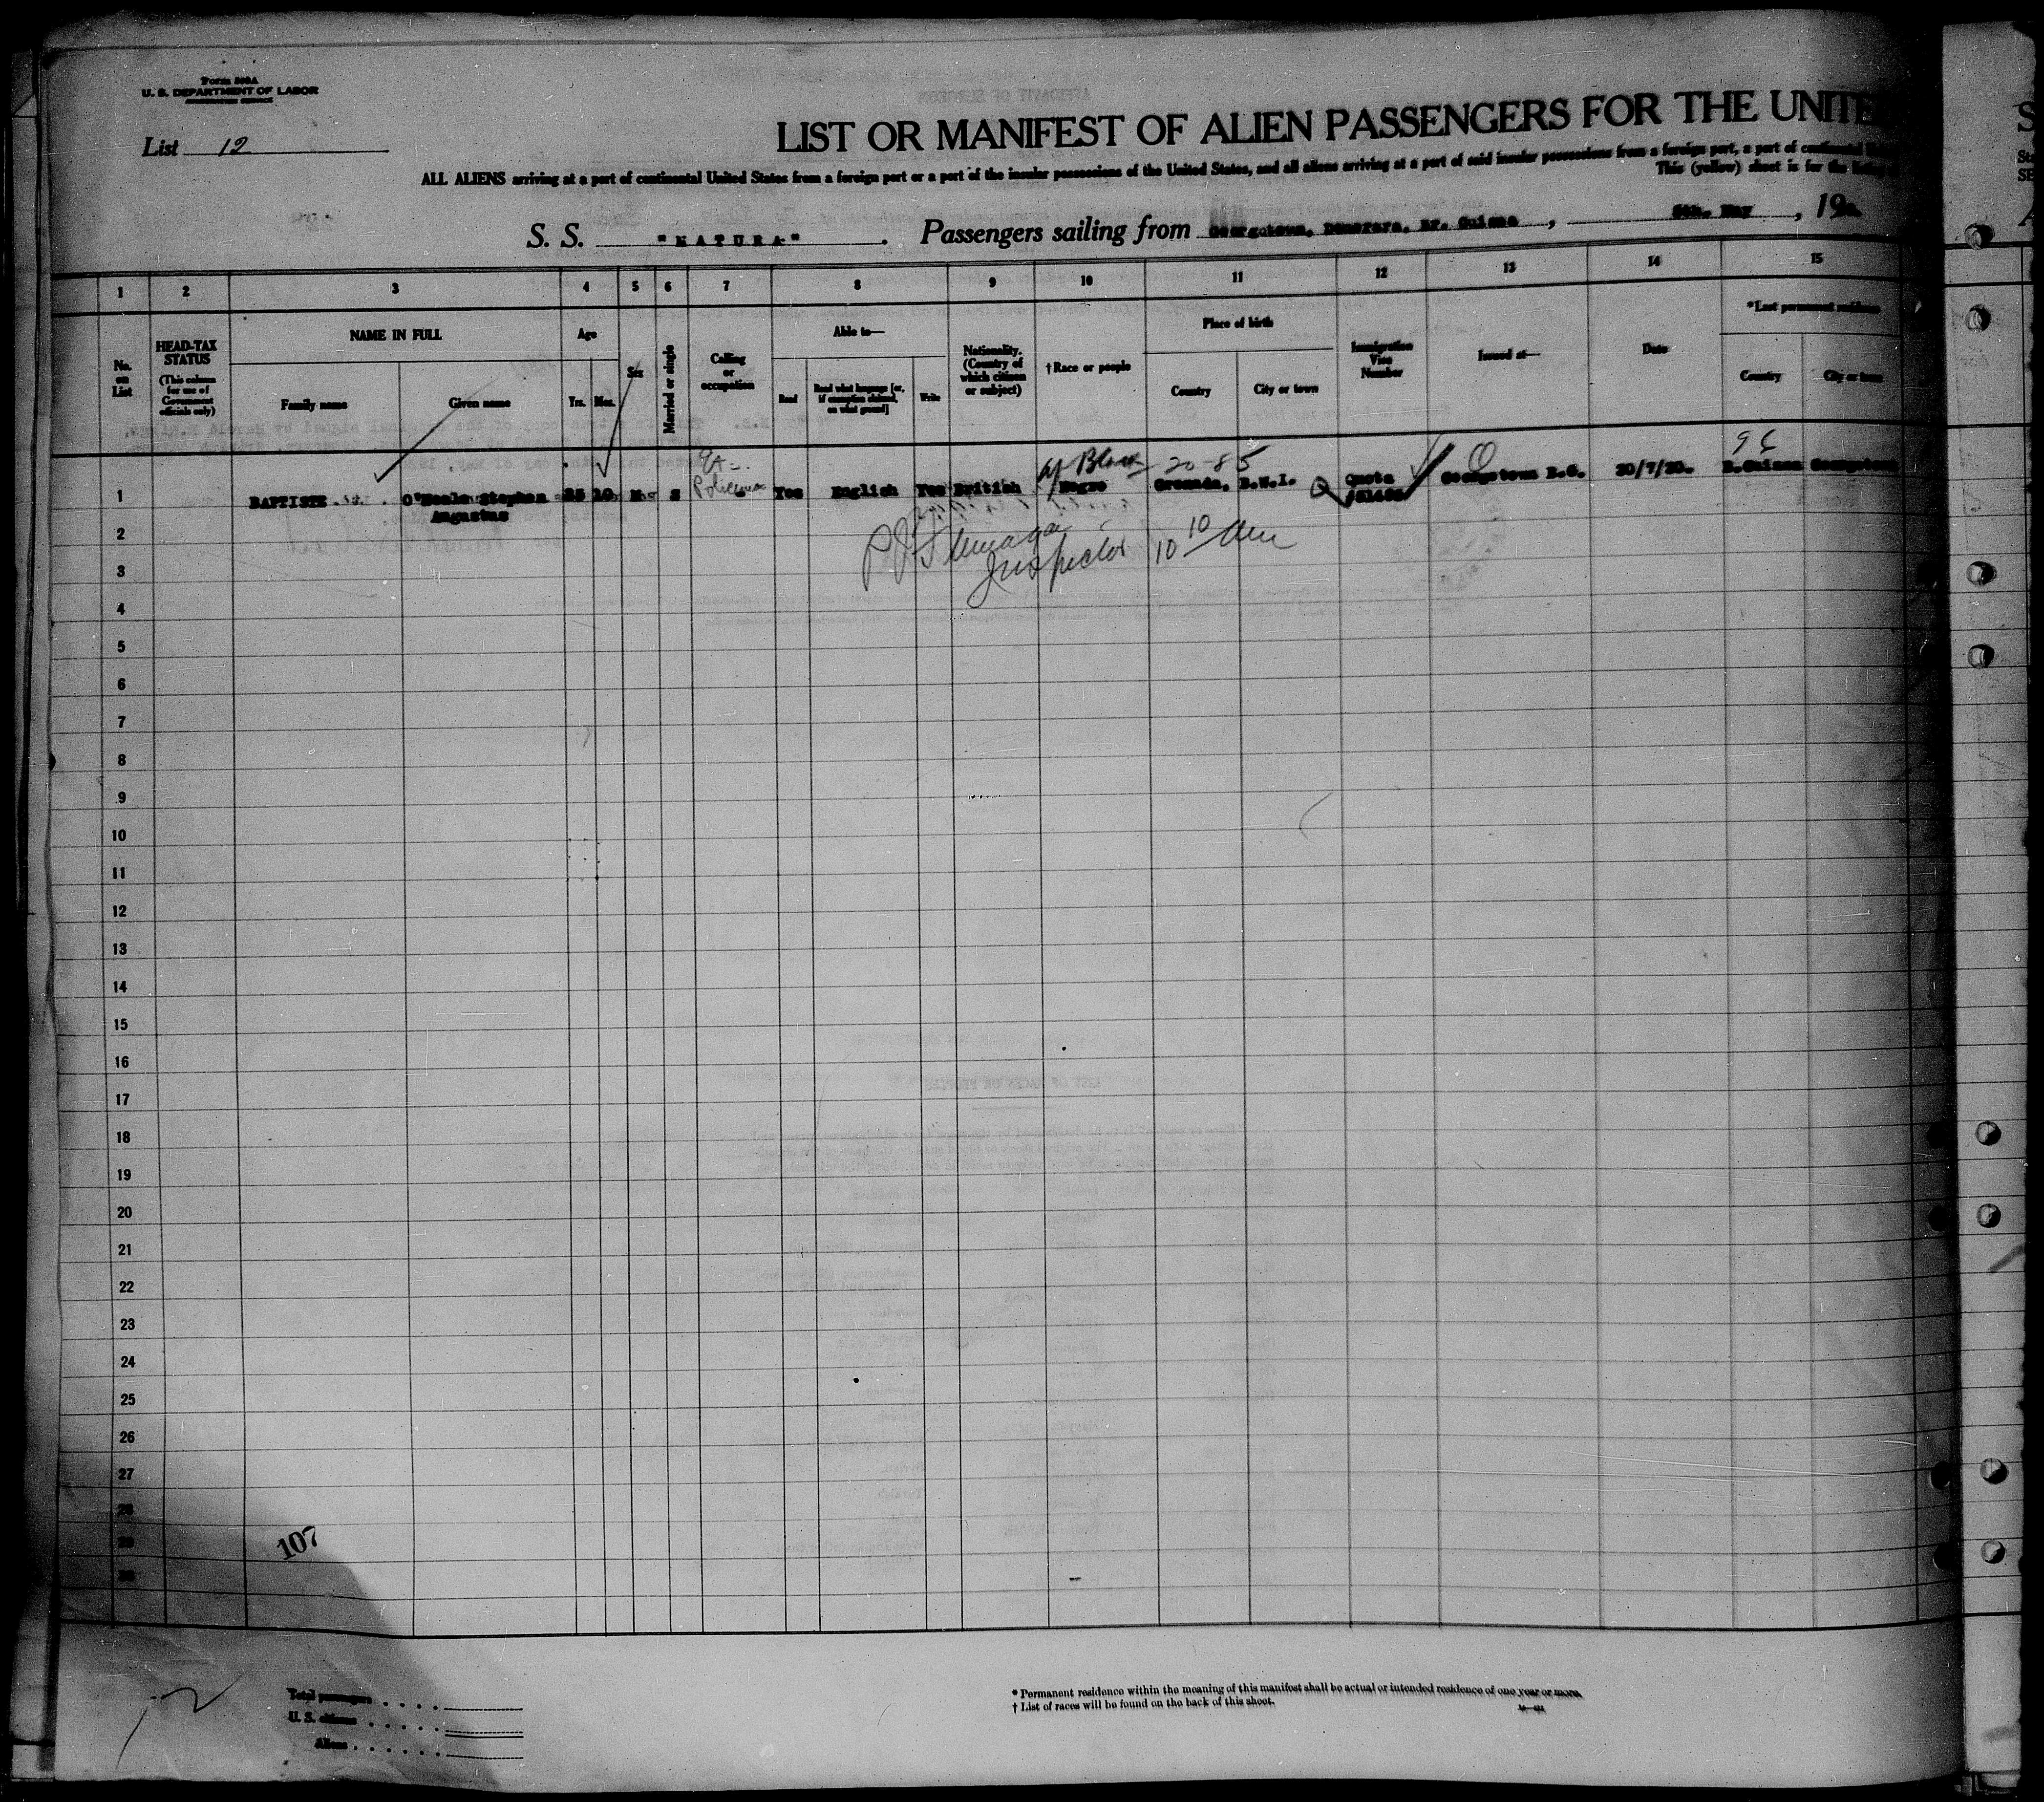 Form 500A
U. S. DEPARTMENT OF LABOR
IMMIGRATION SERVICE
List 12
LIST OR MANIFEST OF ALIEN PASSENGERS FOR THE UNITE
ALL ALIENS arriving at a port of continental United States from a foreign port or a port of the insular possessions of the United States, and all aliens arriving at a port of said insular possessions from a foreign port, a port of continental
This (yellow) sheet is for the listing
S. S. "MATURA". Passengers sailing from Georgetown, Demerara, Br. Guiana, 6th. May, 19
1 2 3 4 5 6 7 8 9 10 11 12 13 14 15
No. on List
HEAD-TAX STATUS
(This column for use of Government officials only)
NAME IN FULL
Family name
Given name
Age
Yrs. Mos.
Sex
Married or single
Calling or occupation
Able to—
Read
Read what language [or, if exemption claimed, on what ground]
Write
Nationality. (Country of which citizen or subject)
† Race or people
Place of birth
Country
City or town
Immigration Visa Number
Issued at—
Date
*Last permanent residence
Country
City or town
Ex-
Policeman
Af Black
20-85
1 BAPTISTE O'Neale Stephen 25 10 M S Yes English Yes British Negro Grenada, B.W.I. Quota Georgetown B.G. 30/7/30. B.Guiana Georgetown
Augustus
Inspector 10 10 am
2
3
4
5
6
7
8
9
10
11
12
13
14
15
16
17
18
19
20
21
22
23
24
25
26
27
28
29
30
107
Total passengers
U. S. citizens
Aliens
* Permanent residence within the meaning of this manifest shall be actual or intended residence of one year or more.
† List of races will be found on the back of this sheet.